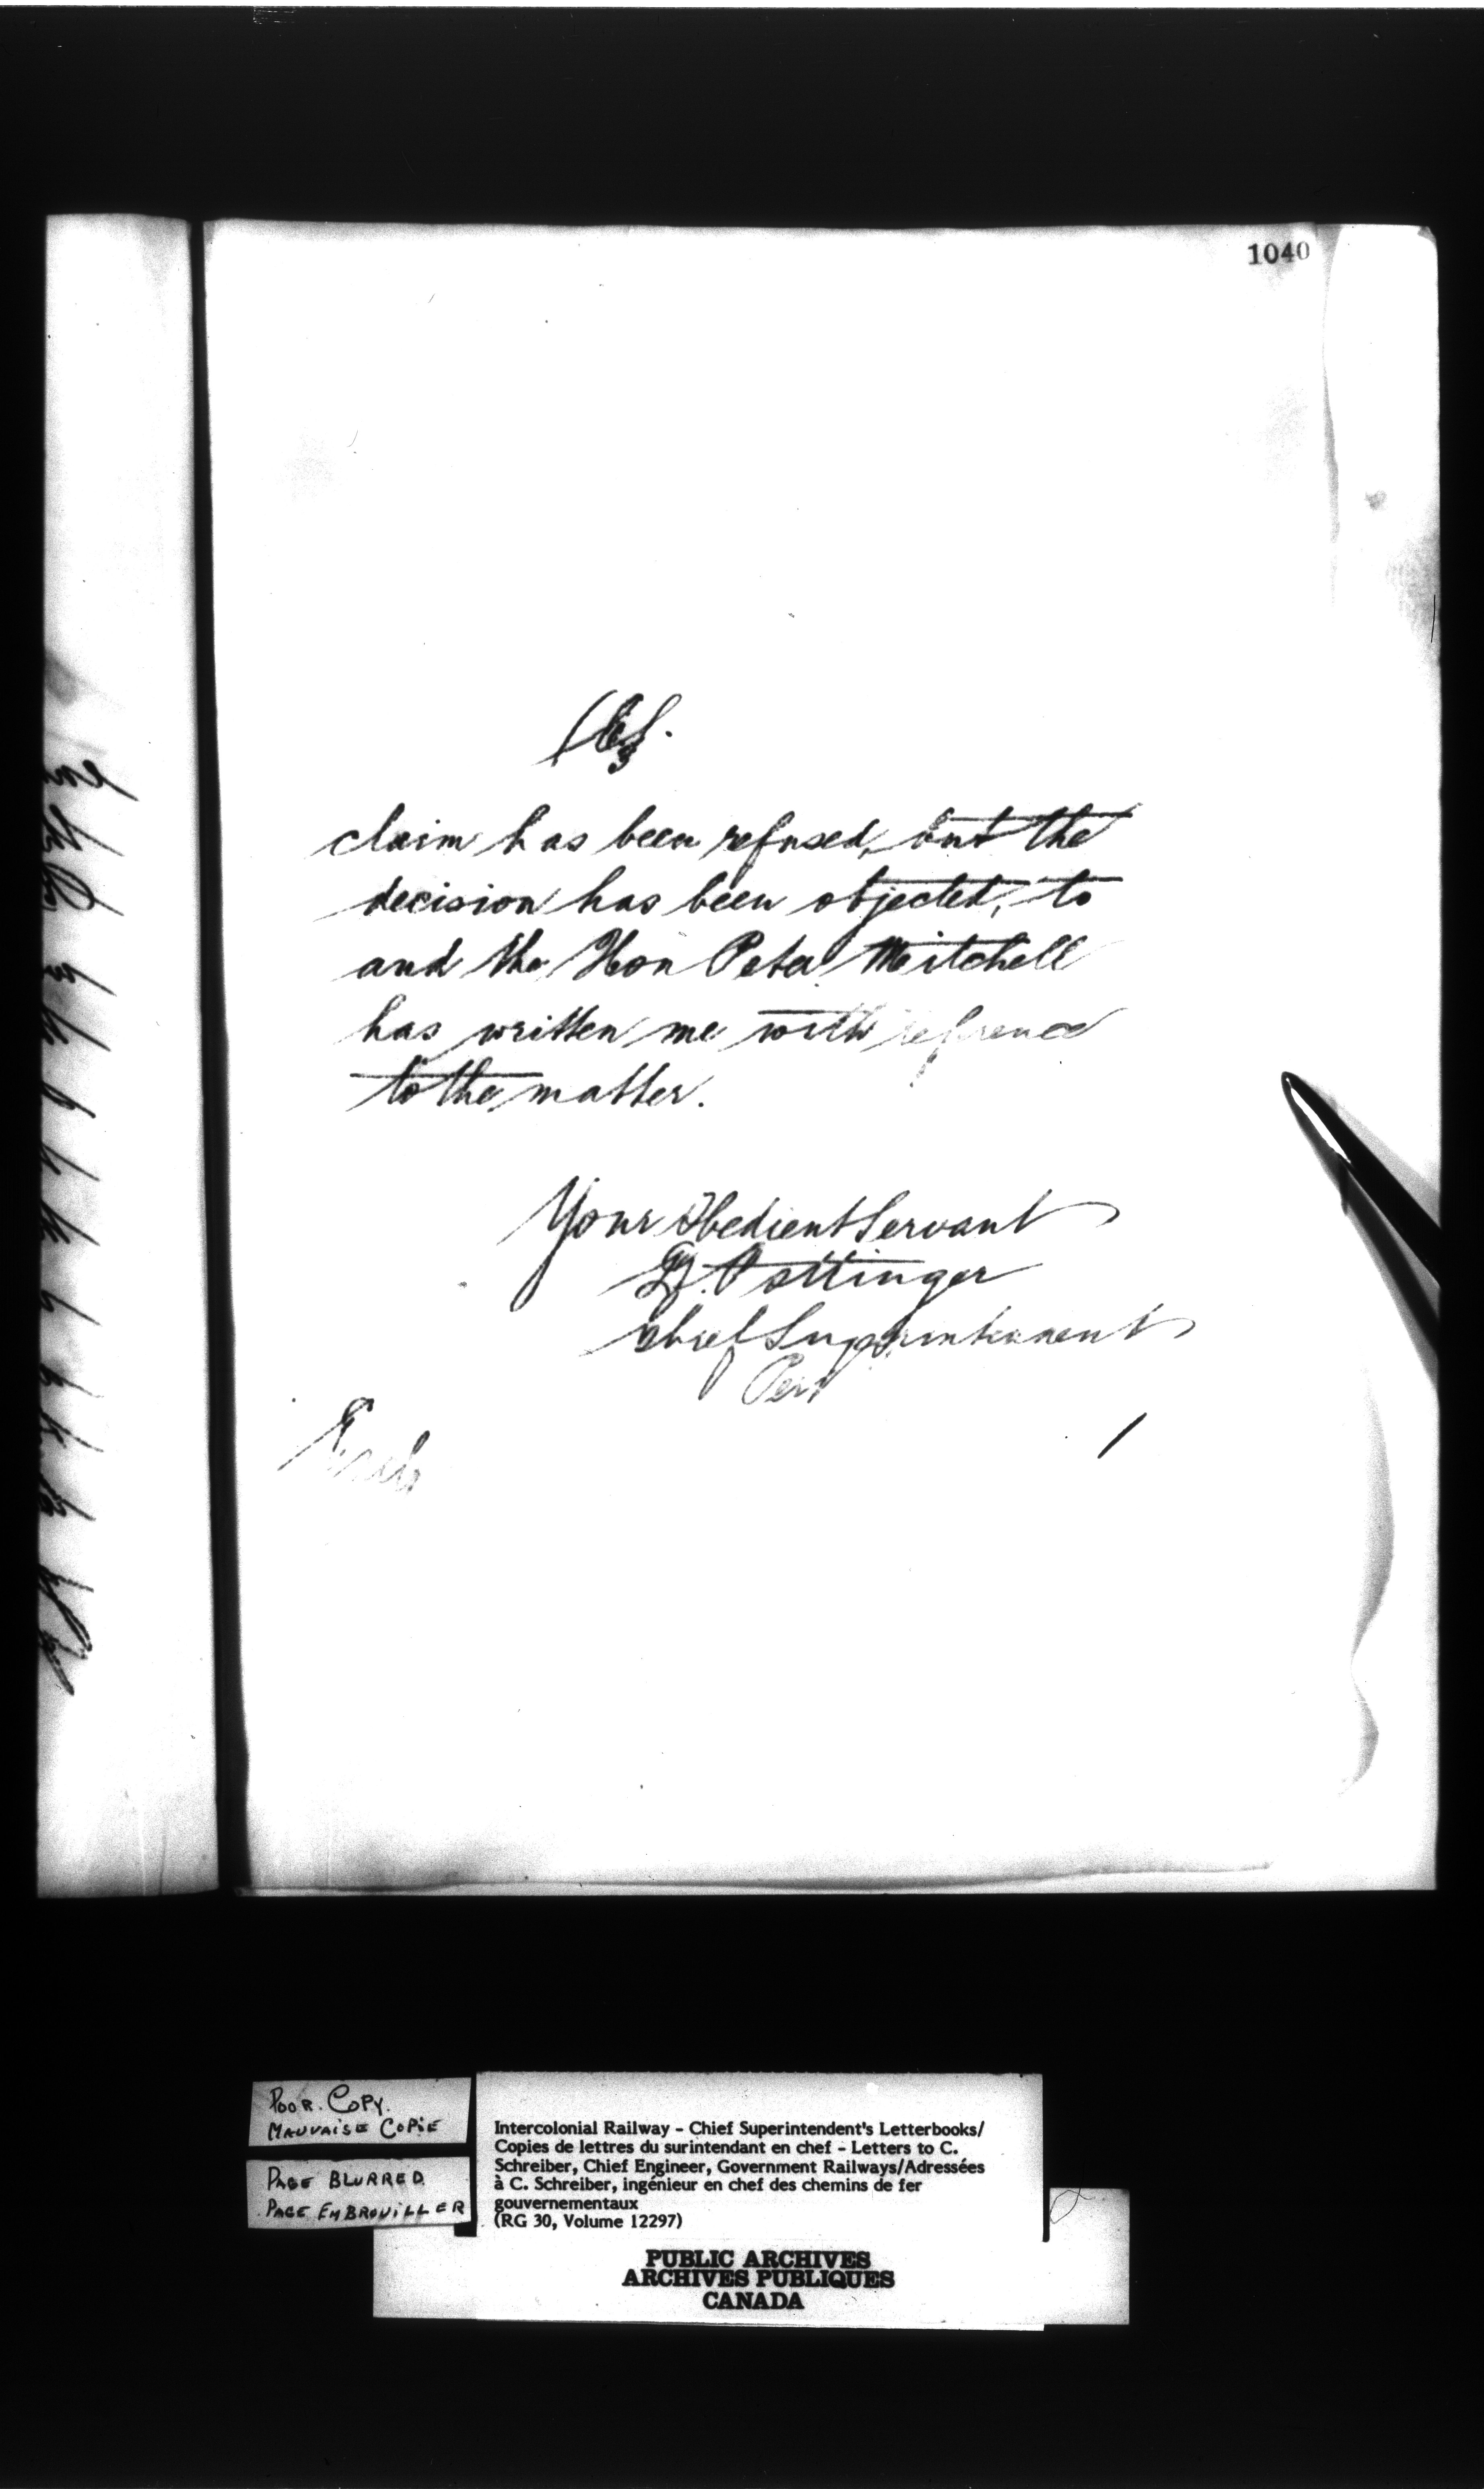 1040
claim has been refused, but the
decision has been objected, to
and the Hon Peter Mitchell
has written me with reference
to the matter.
Your Obedient Servant
D. Pottinger
Chief Superintendent
Per
POOR. COPY.
MAUVAISE COPIE
PAGE BLURRED
PAGE EMBROUILLER
Intercolonial Railway - Chief Superintendent's Letterbooks/
Copies de lettres du surintendant en chef - Letters to C.
Schreiber, Chief Engineer, Government Railways/Adressées
à C. Schreiber, ingénieur en chef des chemins de fer
gouvernementaux
(RG 30, Volume 12297)
PUBLIC ARCHIVES
ARCHIVES PUBLIQUES
CANADA